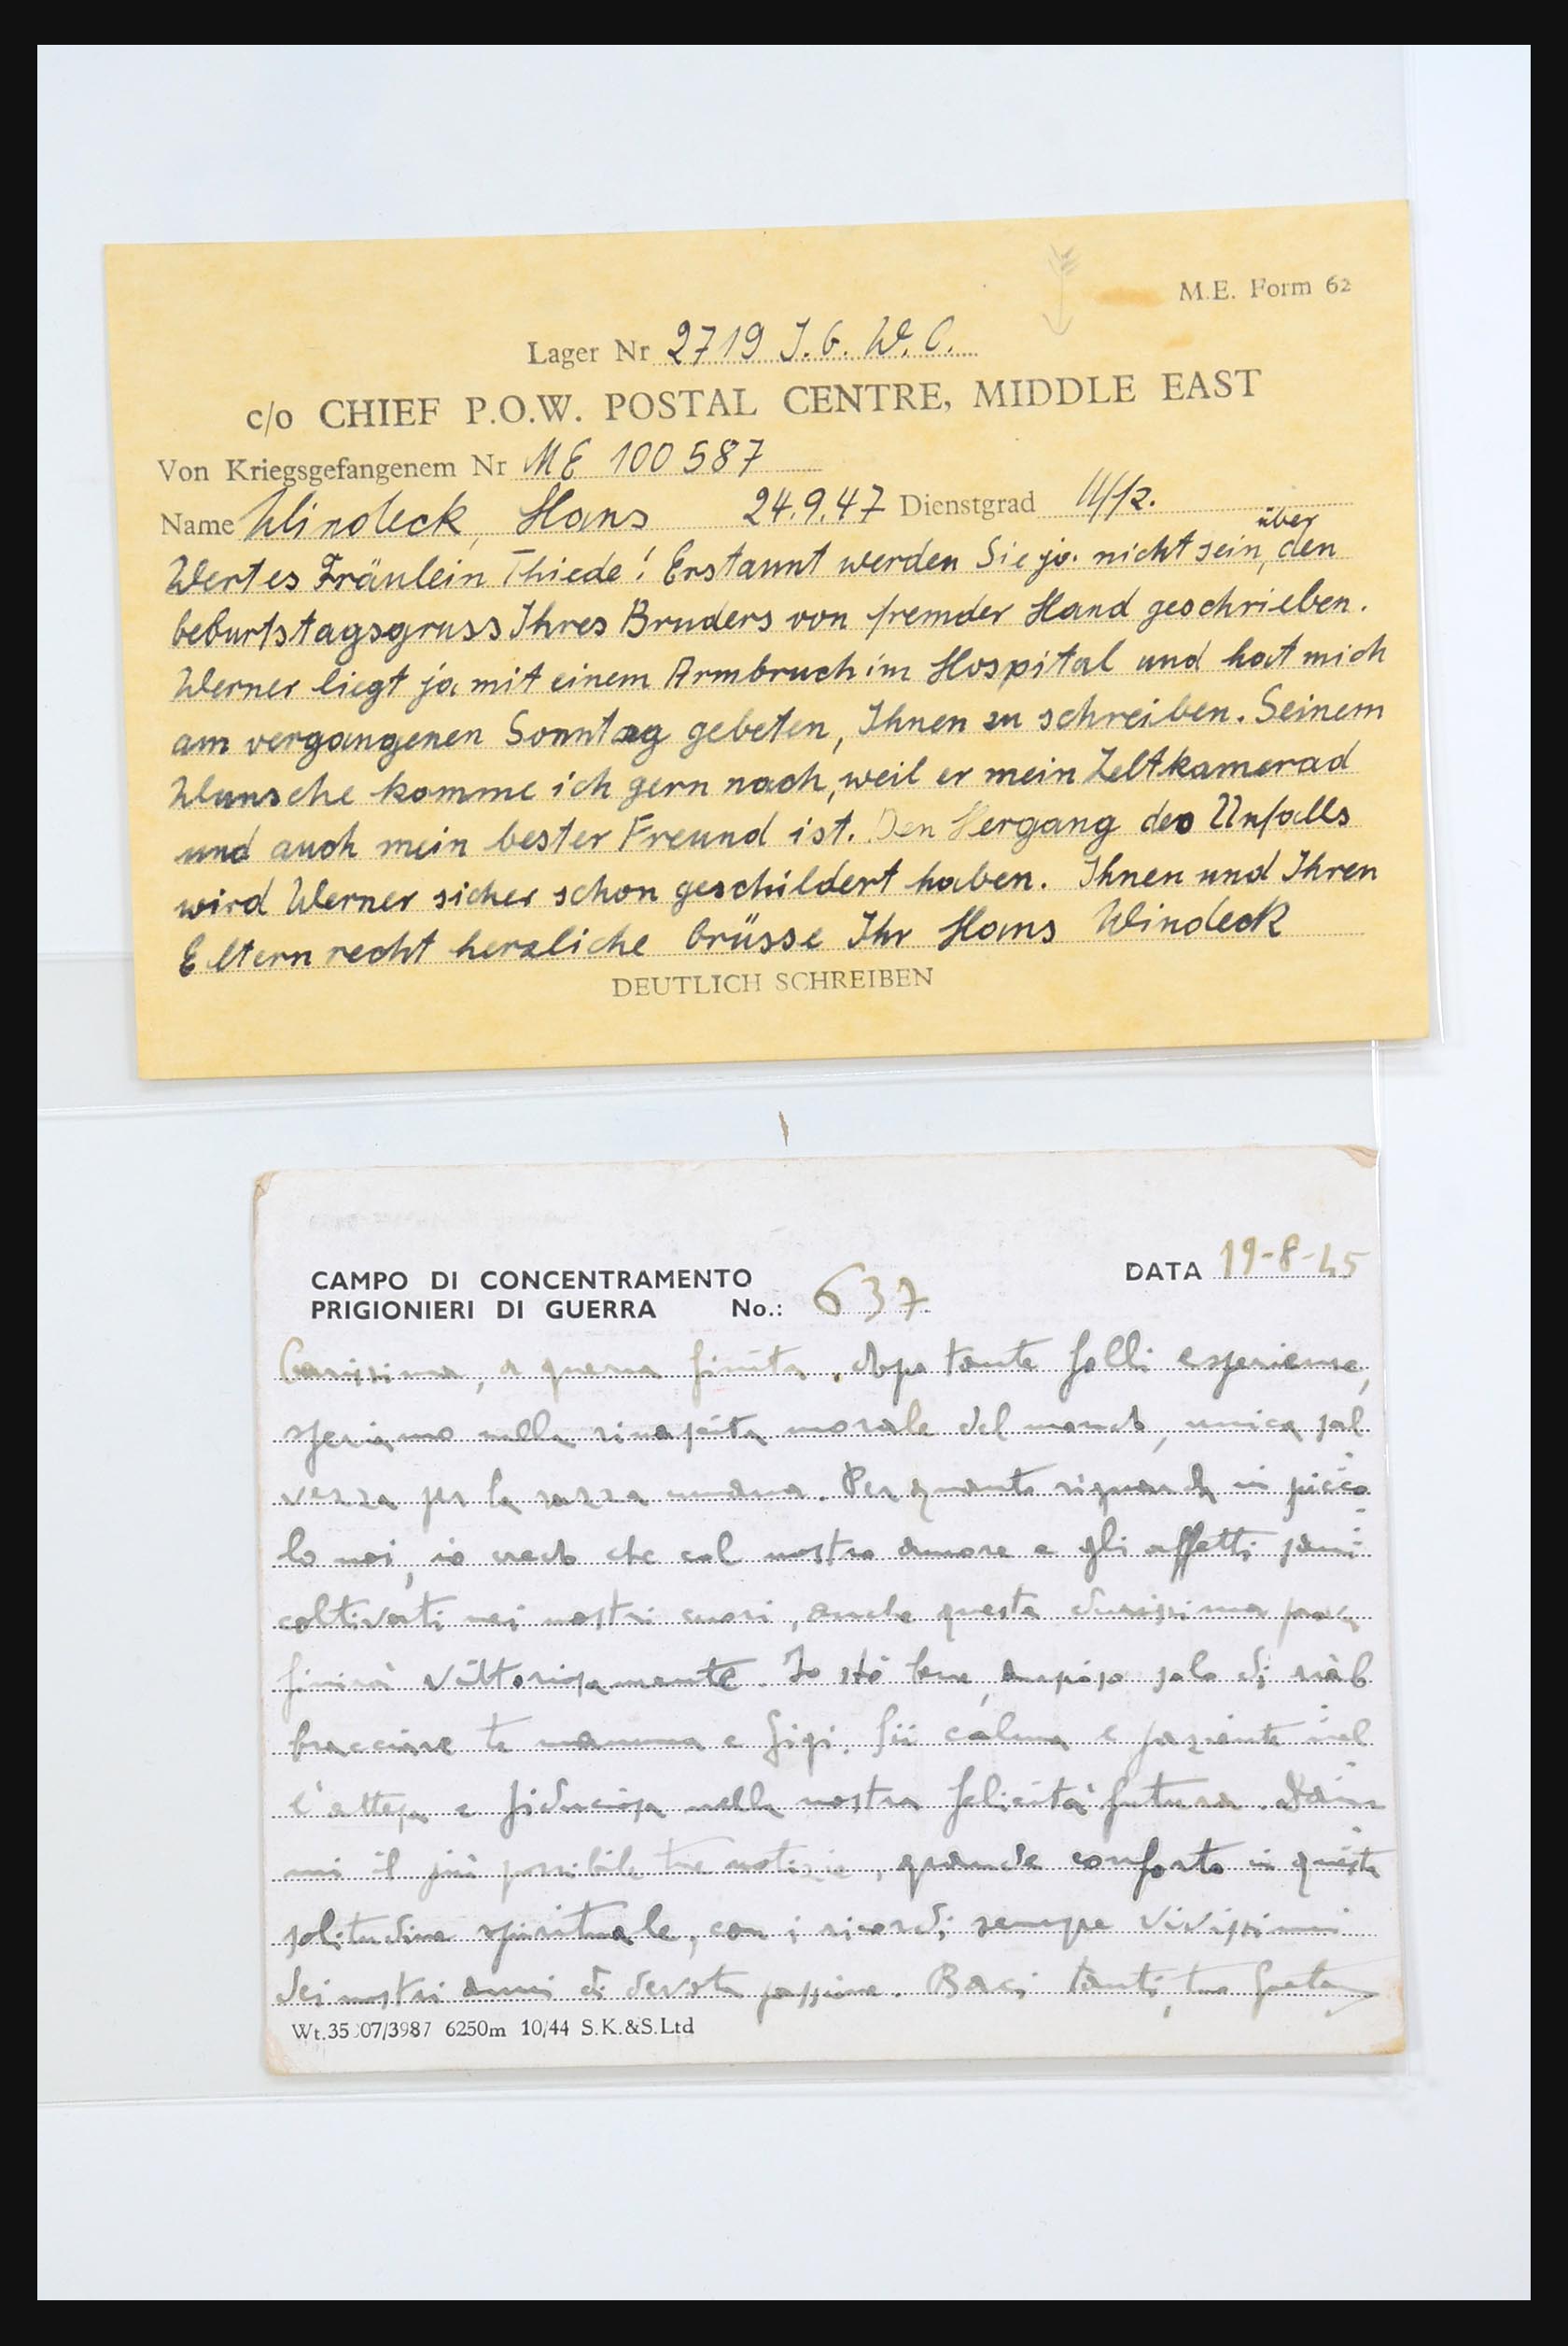 M.E. Form 62
Lager Nr 2719 J. G. W. C.
c/o CHIEF P.O.W. POSTAL CENTRE, MIDDLE EAST
Von Kriegsgefangenem Nr ME 100587
Name Windeck, Hans 24.9.47 Dienstgrad
über
Wertes Fräulein Thiede! Erstaunt werden Sie ja nicht sein, den
Geburtstagsgruss Ihres Bruders von fremder Hand geschrieben.
Werner liegt ja mit einem Armbruch im Hospital und hat mich
am vergangenen Sonntag gebeten, Ihnen zu schreiben. Seinem
Wunsche komme ich gern nach, weil er mein Zeltkamerad
und auch mein bester Freund ist. Den Hergang des Unfalls
wird Werner sicher schon geschildert haben. Ihnen und Ihren
Eltern recht herzliche Grüsse Ihr Hans Windeck
DEUTLICH SCHREIBEN
CAMPO DI CONCENTRAMENTO
PRIGIONIERI DI GUERRA No.: 637
DATA 19-8-45
Carissima, a guerra finita, dopo tante folli esperienze,
speriamo nella rinascita morale del mondo, unica sal
vezza per la razza umana. Per quanto riguarda in picco
lo noi, io credo che col nostro amore e gli affetti sani
coltivati nei nostri cuori, anche questa durissima prova
finirà vittoriosamente. Io stò bene, ansioso solo di riab
bracciare te mamma e Gigi. Sii calma e paziente nel
l'attesa e fiduciosa nella nostra felicità futura. Dam
mi il più possibile tue notizie, grande conforto in questa
solitudine spirituale, con i ricordi sempre vivissimi
dei nostri anni di devota passione. Baci tanti, tuo
Wt.35 07/3987 6250m 10/44 S.K.&S.Ltd